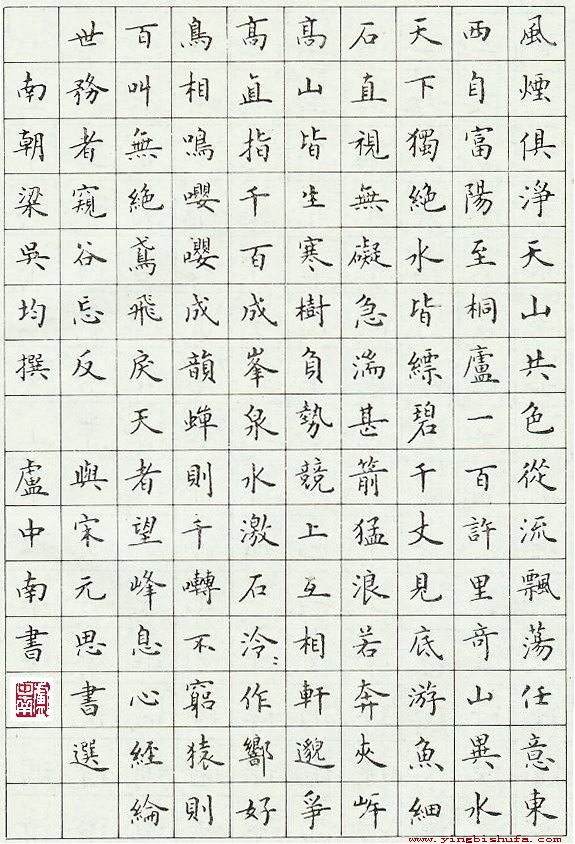 風煙俱淨天山共色從流飄蕩任意東
西自富陽至桐廬一百許里奇山異水
天下獨絕水皆縹碧千丈見底游魚細
石直視無礙急湍甚箭猛浪若奔夾岸
高山皆生寒樹負勢競上互相軒邈爭
高直指千百成峯泉水激石泠〻作響好
鳥相鳴嚶嚶成韻蟬則千囀不窮猿則
百叫無絕鳶飛戾天者望峰息心經綸
世務者窺谷忘反 與宋元思書選
南朝梁吳均撰 盧中南書
盧中南
www.yingbishufa.com